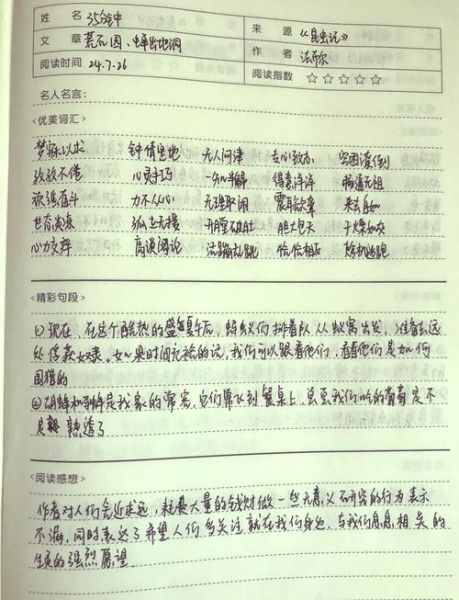 姓 名 35分钟 来 源 《昆虫记》
文 章 荒石园、蝉出地洞 作 者 法布尔
阅读时间 24.7.26 阅读指数 ☆☆☆☆☆
名人名言:
<优美词汇>
梦寐以求 钟情宝地 无人问津 专心致志 穷困潦倒
孜孜不倦 心灵手巧 一知半解 得意洋洋 畅通无阻
顽强奋斗 力不从心 无理取闹 震耳欲聋 来去自如
世态炎凉 孤立无援 胆大包天 干燥如灰
心力交瘁 高谈阔论 活蹦乱跳 恰恰相反 趁机逃跑
<精彩句段>
①现在,在这个酷热的盛夏午后,蚂蚁们排着队从蚁窝出发,准备去远
处俘获奴隶,如果时间充裕的话,我们可以跟着他们,看看他们是如何
围猎的
②胡蜂和 是我家的常客,它们常飞到餐桌上,尝尝我们吃的葡萄是不
是 熟透了
<阅读感想>
作者对人们舍近求远,耗费大量的钱财做一些无意义研究的行为表示
不满,同时表达了希望人们多关注就在我们身边,与我们息息相关的
生灵的强烈愿望